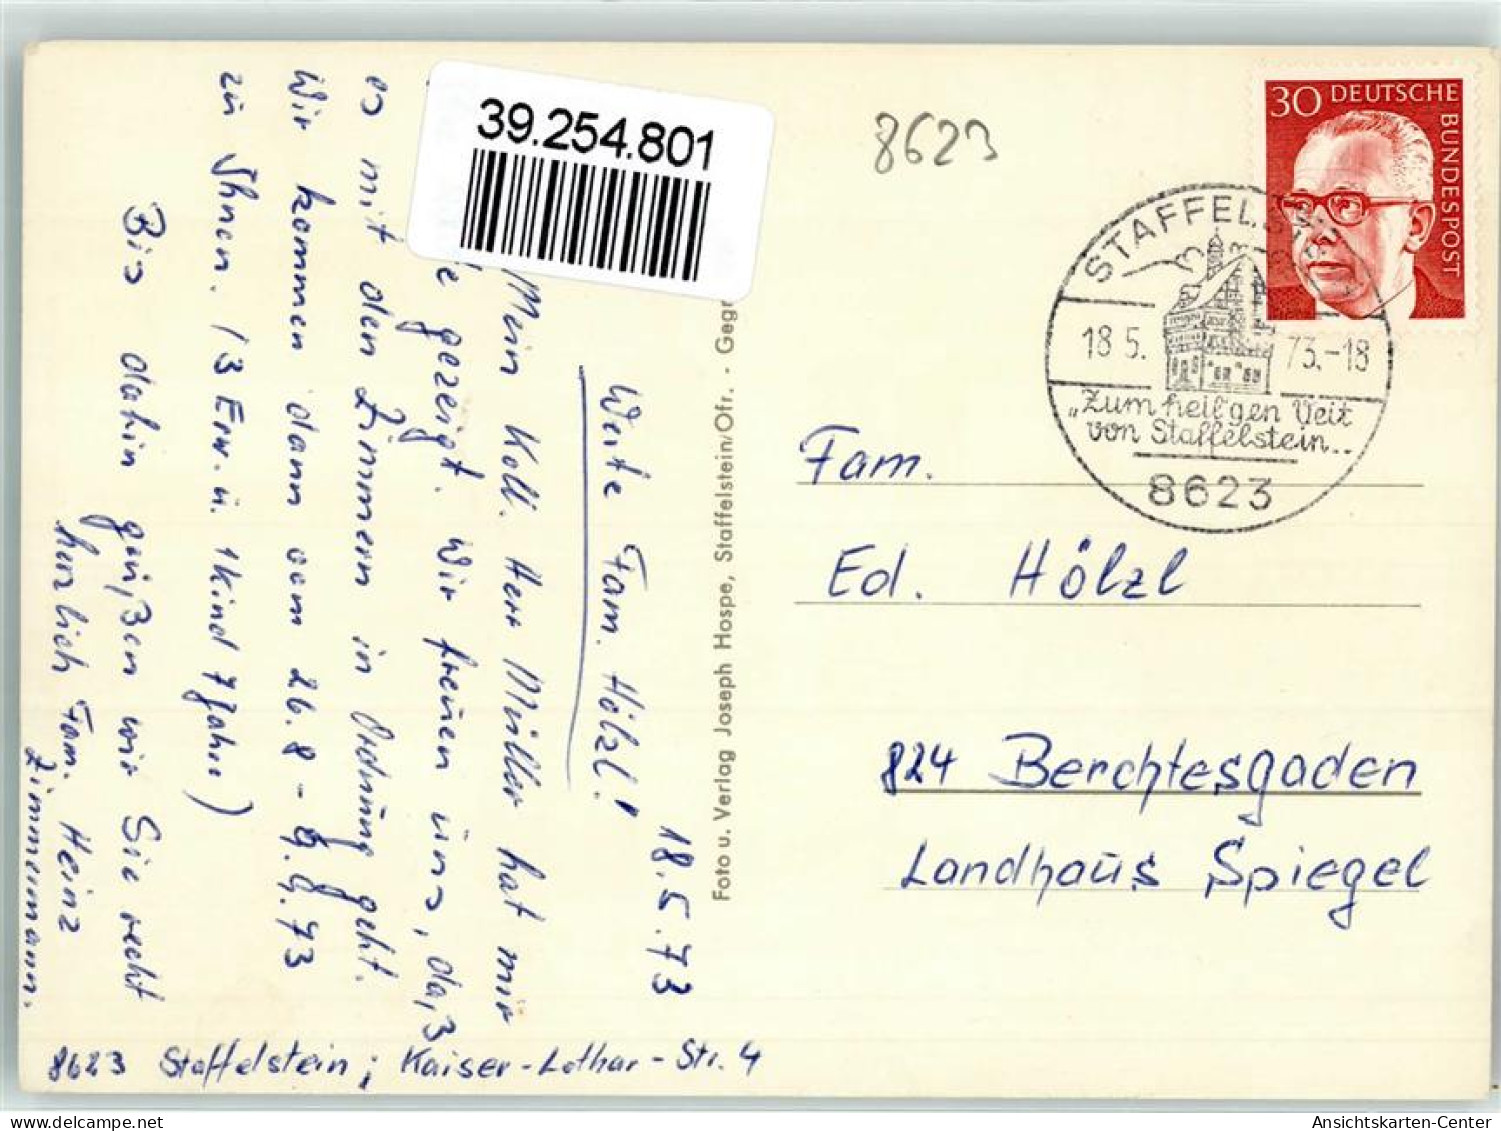 39.254.801
18.5.73
Werte Fam. Hölzl!
Mein Koll. Herr Müller hat mir
gezeigt. Wir freuen uns, da,3
es mit den Zimmern in Ordnung geht.
Wir kommen dann vom 26.8 - 9.9.73
zu Ihnen. (3 Erw. u. 1 Kind 7 Jahre)
Bis dahin grü,3en wir Sie recht
herzlich Fam. Heinz
Zimmermann.
8623 Staffelstein; Kaiser-Lothar-Str. 4
Foto u. Verlag Joseph Hospe, Staffelstein/Ofr. - Gegr
8623
30 DEUTSCHE
BUNDESPOST
STAFFELSTEIN
18 5. 73.-18
„Zum heil'gen Veit
von Staffelstein..
8623
Fam.
Ed. Hölzl
824 Berchtesgaden
Landhaus Spiegel
Ansichtskarten-Center